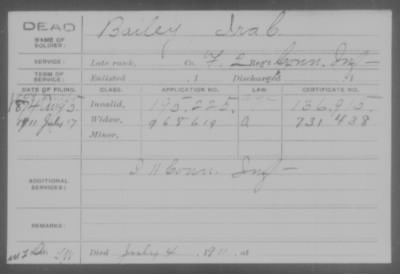 DEAD
NAME OF SOLDIER: Bailey Ira C.
SERVICE: Late rank, Co. F, 2 Reg't Conn. Inf
TERM OF SERVICE: Enlisted , 1 Discharged , 1
DATE OF FILING. CLASS. APPLICATION NO. LAW. CERTIFICATE NO.
Invalid, 195.225. 136.915.
1911 July 17 Widow, 968619 a 731438
Minor,
ADDITIONAL SERVICES: I 11 Conn. Inf
REMARKS:
Died July 4 1911, at